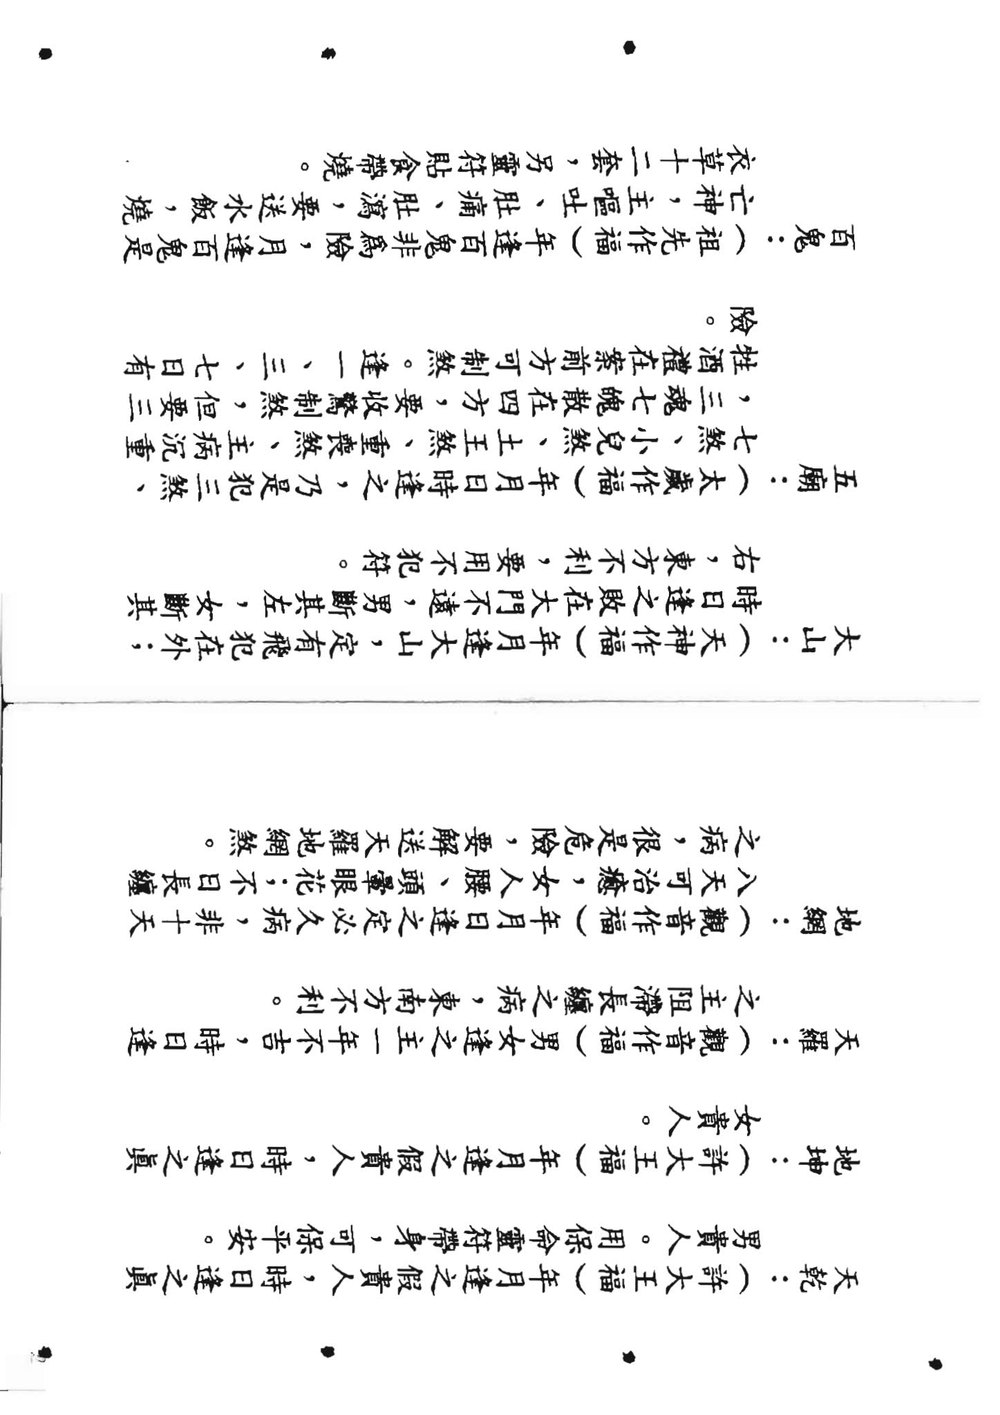 天乾：（許大王福）年月逢之假貴人，時日逢之眞
男貴人。用保命靈符帶身，可保平安。
地坤：（許大王福）年月逢之假貴人，時日逢之眞
女貴人。
天羅：（觀音作福）男女逢之主一年不吉，時日逢
之主阻滯長纏之病，東南方不利。
地網：（觀音作福）年月日逢之定必久病，非十天
八天可治癒，女人腰、頭暈眼花；不日長纏
之病，很是危險，要解送天羅地網煞。
大山：（天神作福）年月逢大山，定有飛犯在外；
時日逢之敗在大門不遠，男斷其左，女斷其
右，東方不利，要用不犯符。
五廟：（太歲作福）年月日時逢之，乃是犯三煞、
七煞、小兒煞、土王煞、重喪煞、主病沉重
，三魂七魄散在四方，要收驚制煞，但要三
牲酒禮在案前方可制煞。逢一、三、七日有
險。
百鬼：（祖先作福）年逢百鬼非爲險，月逢百鬼是
亡神，主嘔吐、肚痛、肚瀉，要送水飯，燒
衣草十二套，另靈符貼食帶燒。